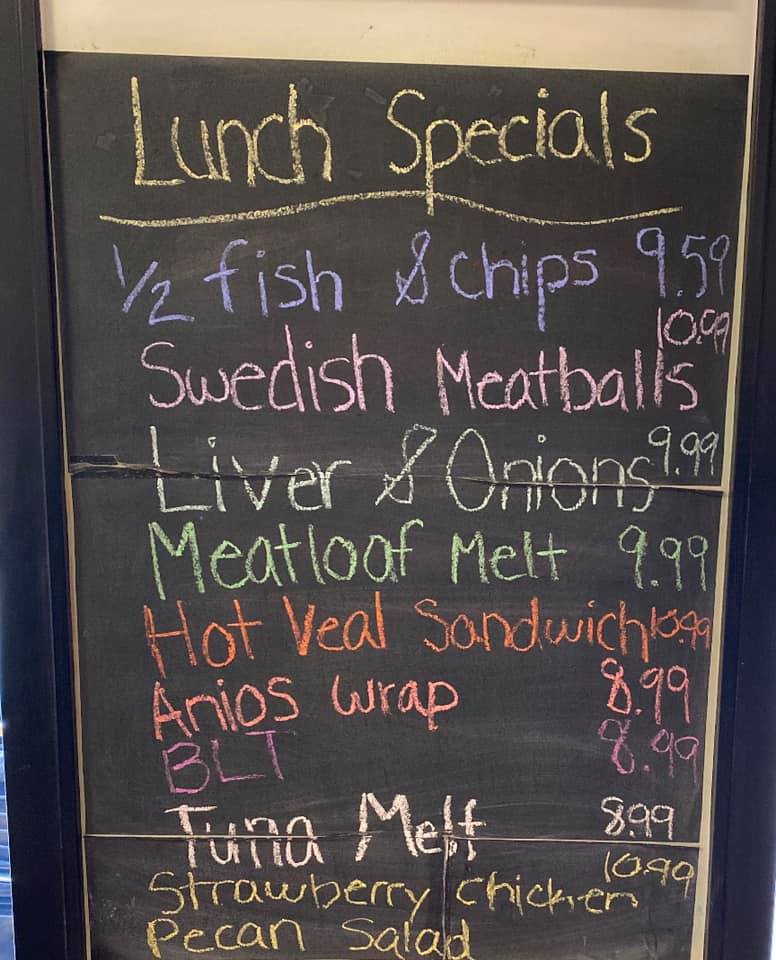 Lunch Specials
1/2 fish & chips 9.59
Swedish Meatballs 10.99
Liver & Onions 9.99
Meatloaf Melt 9.99
Hot Veal Sandwich 10.99
Anios wrap 8.99
BLT 8.99
Tuna Melt 8.99
Strawberry Chicken 10.99
Pecan Salad